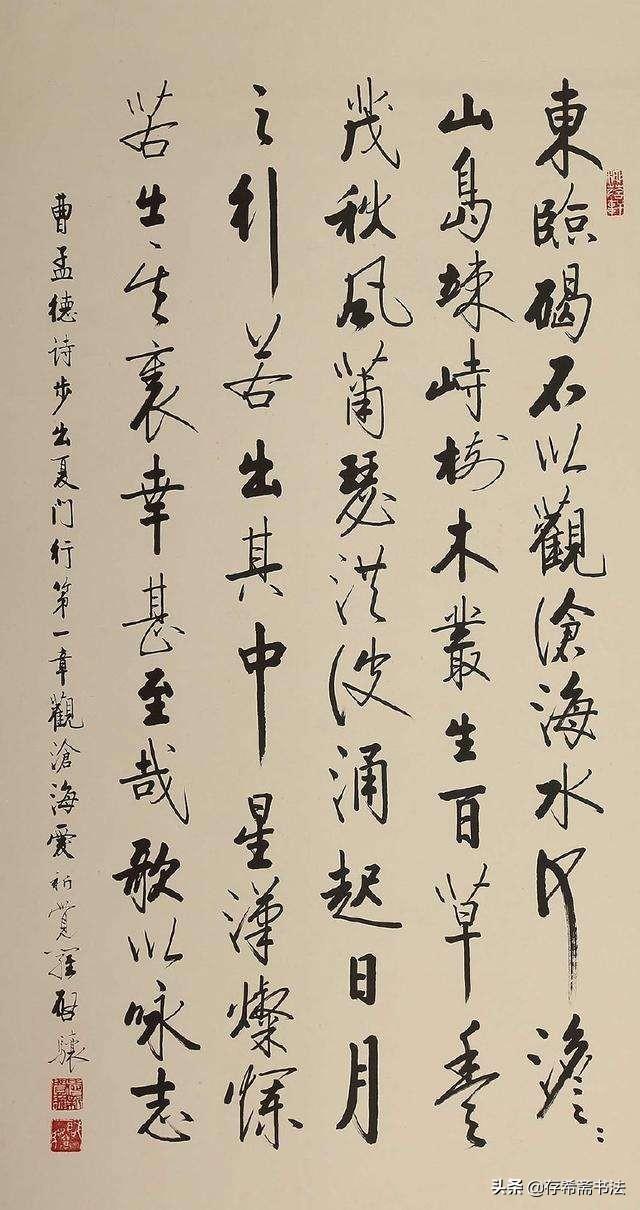 東臨碣石以觀滄海水何澹〻
山島竦峙樹木叢生百草豐
茂秋風蕭瑟洪波涌起日月
之行若出其中星漢燦爛
若出其裏幸甚至哉歌以咏志
曹孟德诗步出夏门行第一章觀滄海愛新覺羅啓驤
头条 @存希斋书法